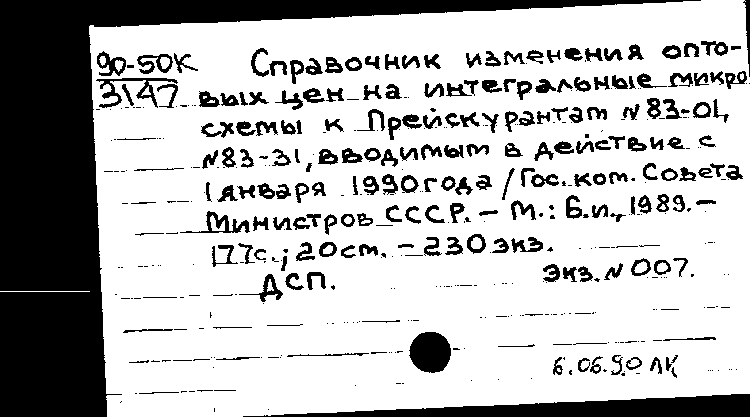 90-50К Справочник изменения опто-
3147 вых цен на интегральные микро
схемы к Прейскурантам N 83-01,
N83-31, вводимым в действие с
1 января 1990 года / Гос. ком. Совета
Министров СССР. – М.: Б.и., 1989. –
177с.; 20 см. – 230 экз.
ДСП. Экз. N 007.
6.06.90 ЛК